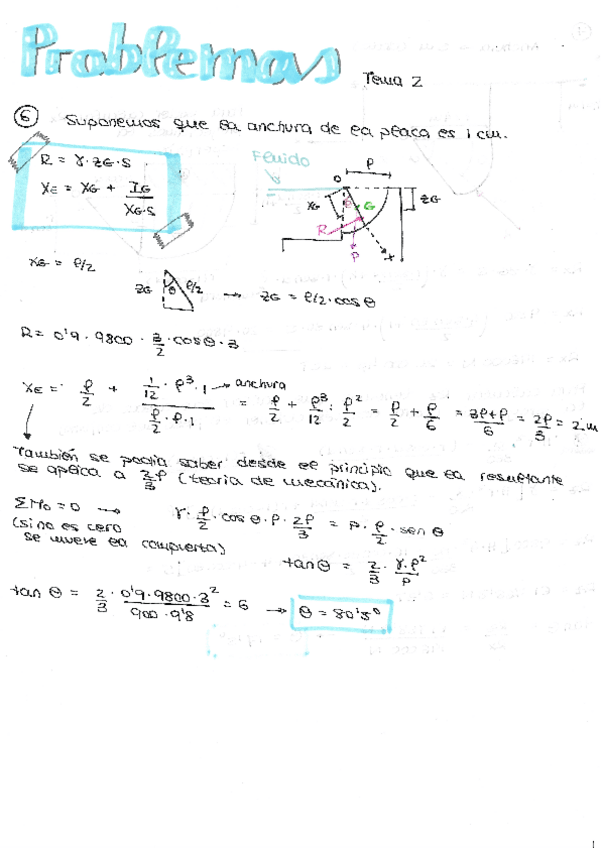 Problemas Tema 2
⑥ Suponemos que la anchura de la placa es 1 cm.
R = γ · ZG · S
XE = XG + IG / XG·S
Fluido
O
ℓ
XG
θ
G
ZG
R
P
X
XG = ℓ/2
ZG θ ℓ/2 → ZG = ℓ/2 · cos θ
R = 0'9 · 9800 · 3/2 · cos θ · 3
XE = ℓ/2 + (1/12 · ℓ³ · 1 → anchura) / (ℓ/2 · ℓ · 1) = ℓ/2 + ℓ³/12 : ℓ²/2 = ℓ/2 + ℓ/6 = 3ℓ+ℓ/6 = 2ℓ/3 = 2 m
También se podía saber desde el principio que la resultante
se aplica a 2ℓ/3 (teoría de mecánica).
ΣMo = 0 → γ · ℓ/2 · cos θ · ℓ · 2ℓ/3 = P · ℓ/2 · sen θ
(si no es cero
se mueve la compuerta)
tan θ = 2/3 · γ · ℓ²/P
tan θ = 2/3 · 0'9 · 9800 · 3² / 900 · 9'8 = 6 → θ = 80'5º
1